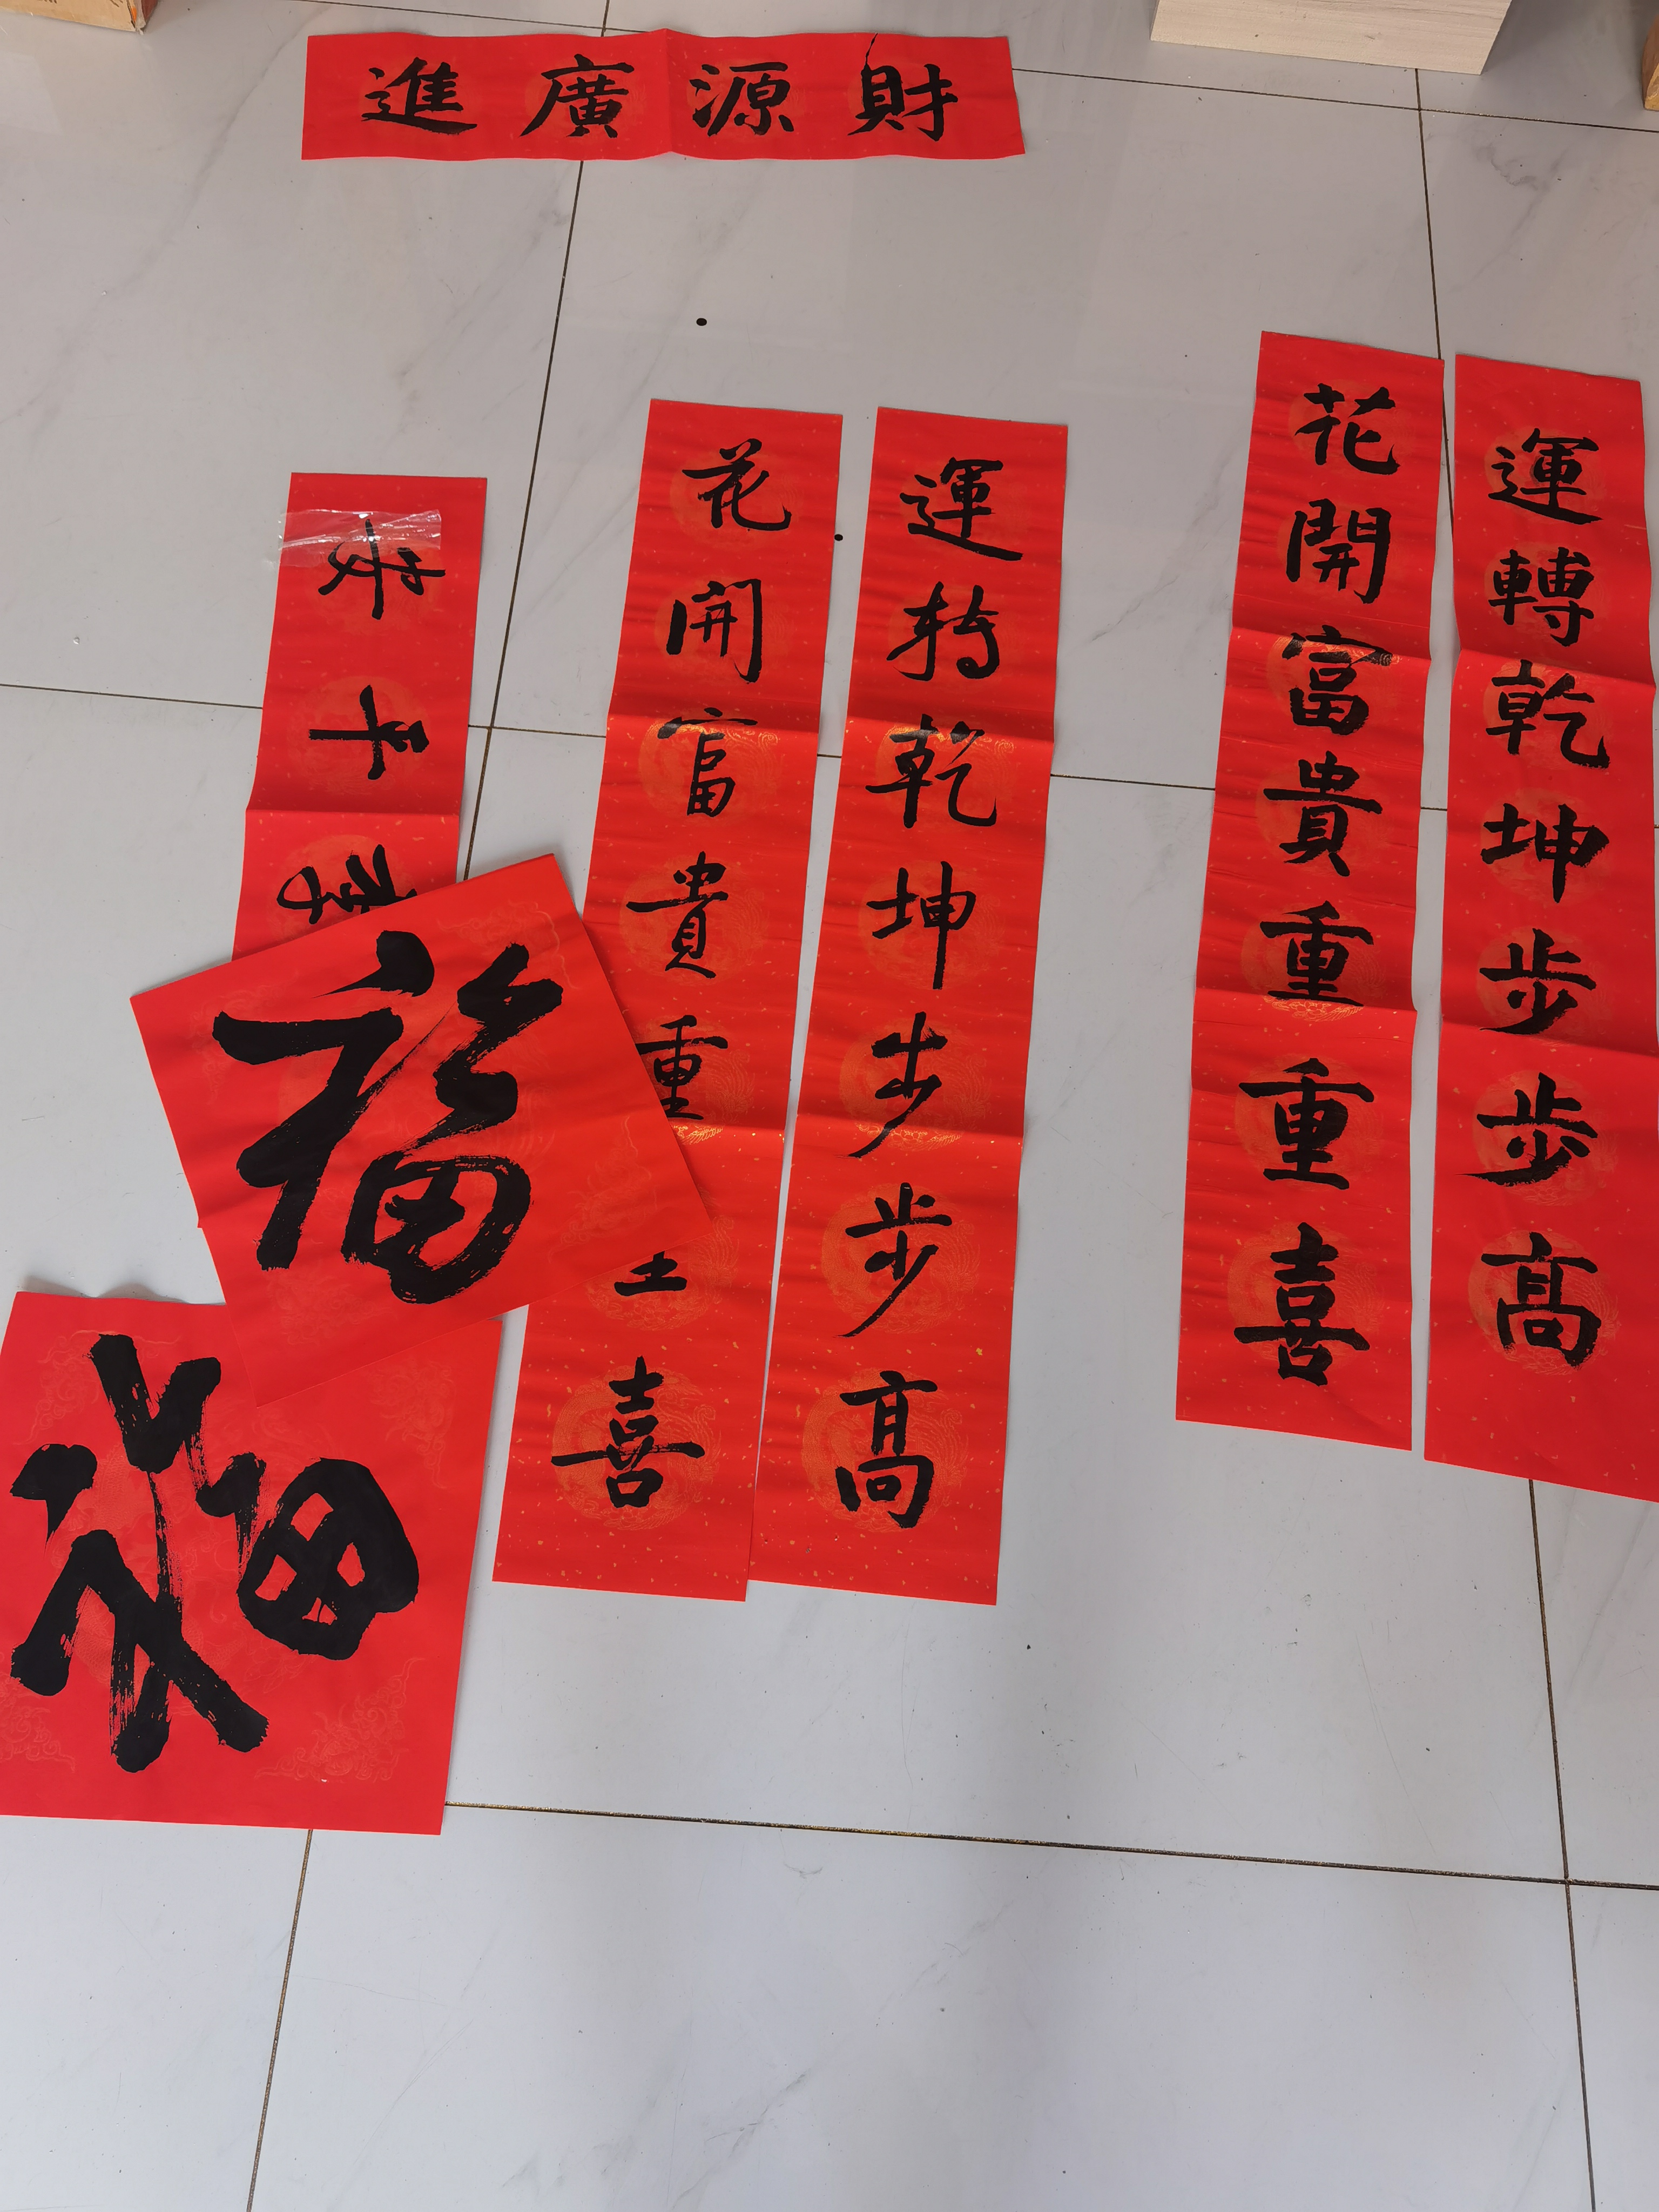 財源廣進
運轉乾坤步步高
花開富貴重重喜
運轉乾坤步步高
花開富貴重喜
福
福